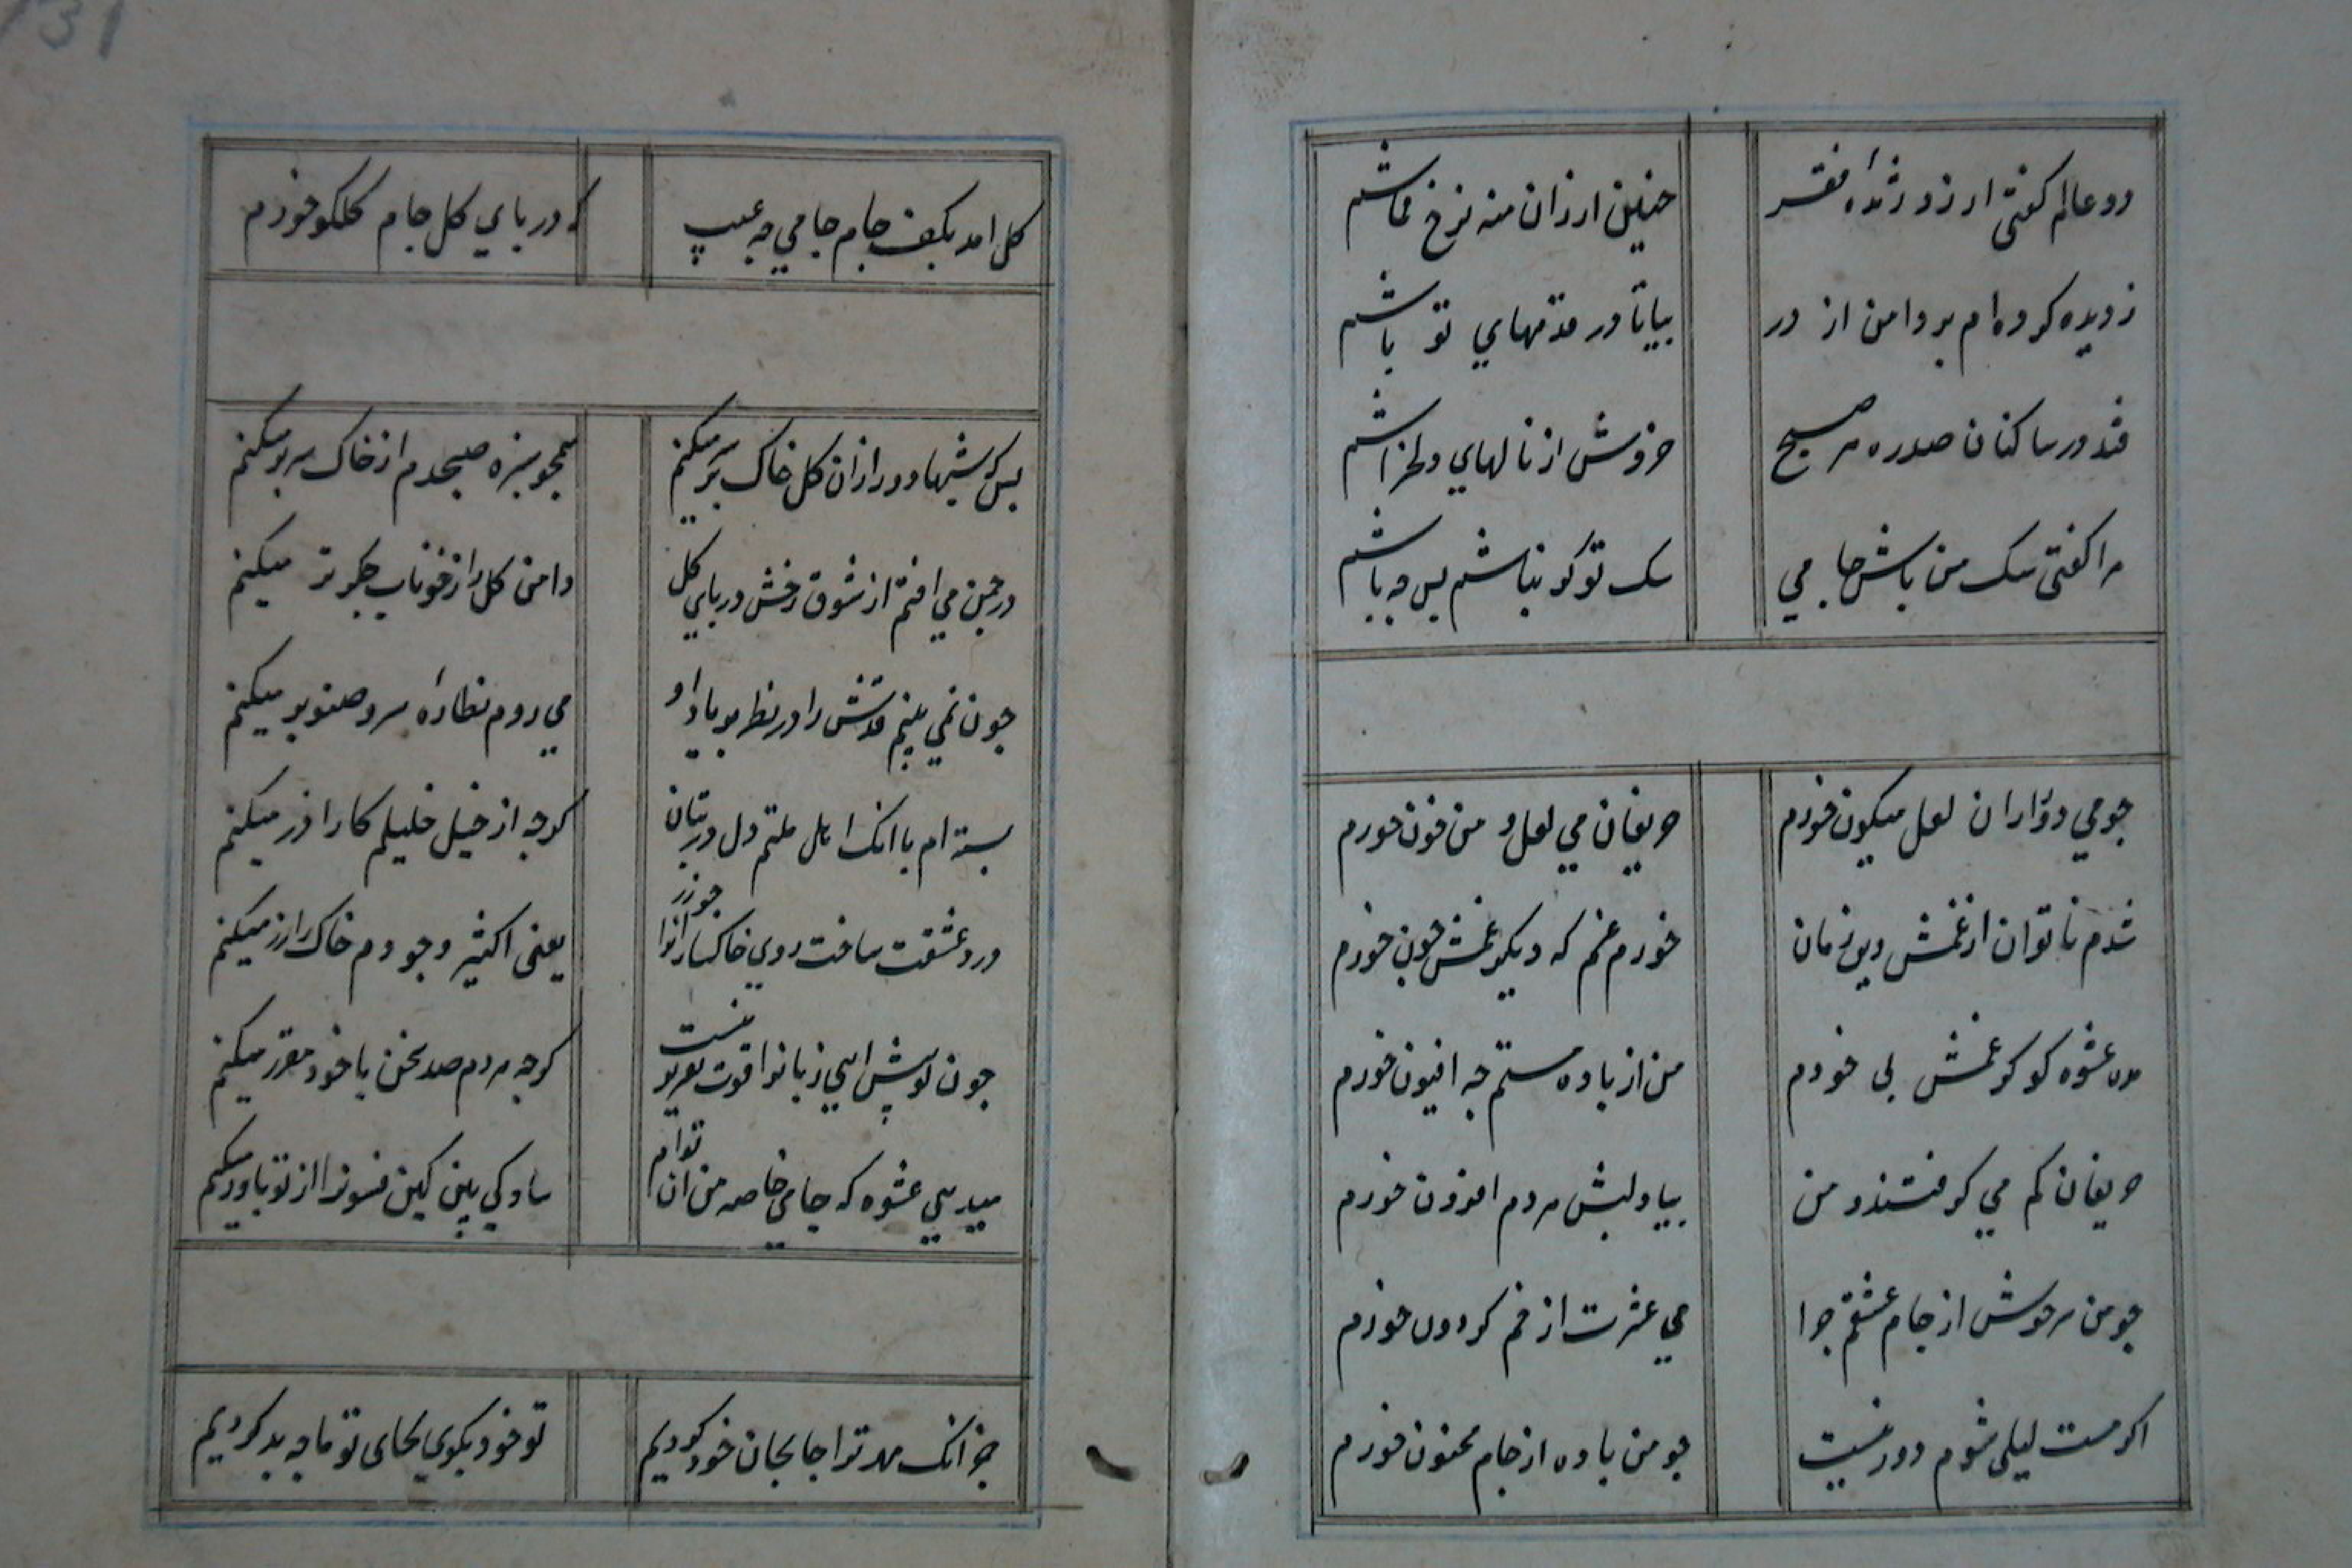 دو عالم کفتی ارزد ژنده فقر چنین ارزان منه نرخ قماشم
ز دیده کرده ام پر دامن از در بیا تا در قدمهای تو باشم
فتد در ساکنان صدره هر صبح خروش از نالهای دلخراشم
مرا کفتی سک من باش جامی سک تو کو نباشم پس چه باشم
چو می دور از ان لعل میکون خورم حریفان می لعل و من خون خورم
شدم ناتوان از غمش وین زمان خورم غم که دیکر غمش چون خورم
مده عشوه کو کر غمش بی خودم من از باده مستم چه افیون خورم
حریفان کم می کرفتند و من بیاد لبش هر دم افزون خورم
چو من سرخوش از جام عشقم چرا می عشرت از خم کردون خورم
اکر مست لیلی شوم دور نیست چو من باده از جام مجنون خورم
131
کل امد بکف جام جامی چه عیب که در پای کل جام کلکو خورم
بس که شبها دور ازان کل خاک بر سر میکنم همچو سبزه صبحدم از خاک سر بر میکنم
در چمن می افتم از شوق رخش در پای کل دامن کل را ز خوناب جکر تر میکنم
چون نمی بینم قدش را در نظر بر یاد او می روم نظاره سرو صنوبر میکنم
بسته ام با انک اهل ملتم دل در بتان کرچه از خیل خلیلم کار اذر میکنم
درد عشقت ساخت روی خاکسارانرا چو زر یعنی اکثیر وجودم خاک را زر میکنم
چون پیش ایی زبانرا قوت تقریر نیست کرچه هر دم صد سخن با خود مقرر میکنم
میدهی عشوه که جامی خاصه من ان توام سادکی بین کین فسونرا از تو باور میکنم
جز انک مهر ترا جا بجان خود کردیم تو خود بکوی بجای تو ما چه بد کردیم